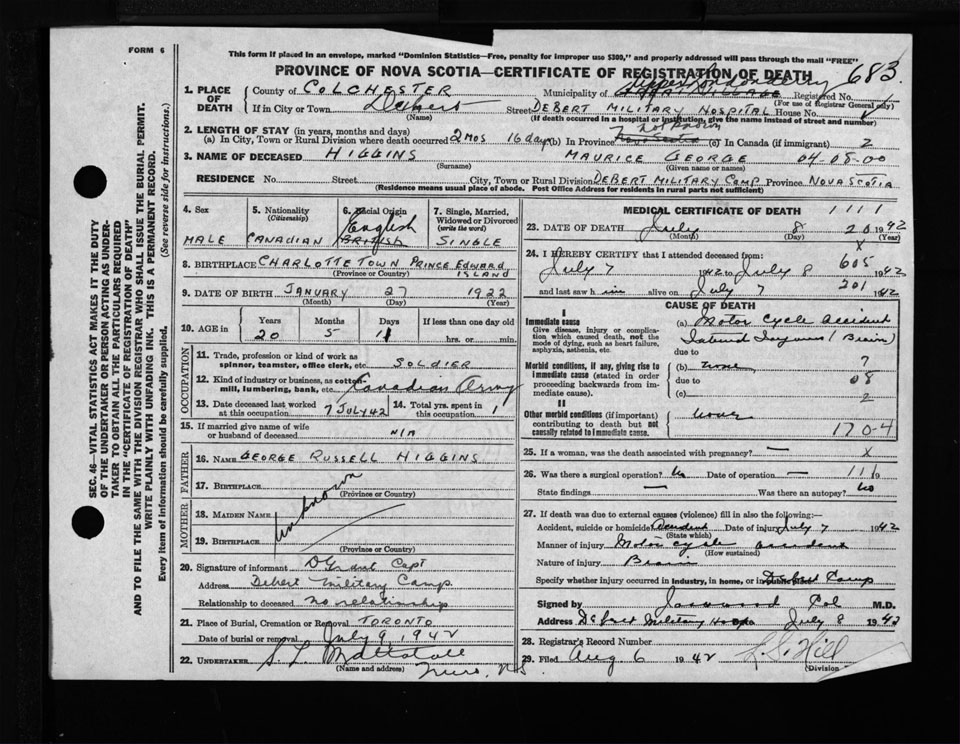 FORM 6
This form if placed in an envelope, marked "Dominion Statistics—Free, penalty for improper use $300," and properly addressed will pass through the mail "FREE"
PROVINCE OF NOVA SCOTIA—CERTIFICATE OF REGISTRATION OF DEATH
683.
1. PLACE OF DEATH
County of COLCHESTER Municipality of Upper Londonderry Registered No.
(For use of Registrar General only)
If in City or Town Debert Street DEBERT MILITARY HOSPITAL House No.
(Name) (If death occurred in a hospital or institution, give the name instead of street and number)
2. LENGTH OF STAY (in years, months and days)
(a) In City, Town or Rural Division where death occurred 2 mos 16 days (b) In Province Not Known (c) In Canada (if immigrant) 2
3. NAME OF DECEASED HIGGINS MAURICE GEORGE 04-08-00
(Surname) (Given name or names)
RESIDENCE No. Street City, Town or Rural Division DEBERT MILITARY CAMP Province NOVA SCOTIA
(Residence means usual place of abode. Post Office Address for residents in rural parts not sufficient)
4. Sex 5. Nationality (Citizenship) 6. Racial Origin 7. Single, Married, Widowed or Divorced (write the word)
MALE CANADIAN English British SINGLE
8. BIRTHPLACE CHARLOTTETOWN PRINCE EDWARD ISLAND
(Province or Country)
9. DATE OF BIRTH JANUARY 27 1922
(Month) (Day) (Year)
10. AGE in Years Months Days If less than one day old
20 5 11 hrs. or min.
OCCUPATION
11. Trade, profession or kind of work as spinner, teamster, office clerk, etc. SOLDIER
12. Kind of industry or business, as cotton mill, lumbering, bank, etc. Canadian Army
13. Date deceased last worked at this occupation 7 JULY 42 14. Total yrs. spent in this occupation 1
15. If married give name of wife or husband of deceased N/A
FATHER
16. NAME GEORGE RUSSELL HIGGINS
17. BIRTHPLACE
(Province or Country)
unknown
MOTHER
18. MAIDEN NAME
19. BIRTHPLACE
(Province or Country)
20. Signature of informant D Grant Capt
Address Debert Military Camp
Relationship to deceased no relationship
21. Place of Burial, Cremation or Removal TORONTO
Date of burial or removal July 9, 1942
22. UNDERTAKER
(Name and address)
Truro, N.S.
MEDICAL CERTIFICATE OF DEATH 1111
23. DATE OF DEATH July 8 20 1942
(Month) (Day)
X
24. I HEREBY CERTIFY that I attended deceased from: 605
July 7 1942 to July 8 1942
and last saw h im alive on July 7 201 1942
CAUSE OF DEATH
I
Immediate cause
Give disease, injury or complication which caused death, not the mode of dying, such as heart failure, asphyxia, asthenia, etc.
(a) Motor Cycle Accident
(Brain)
due to
Morbid conditions, if any, giving rise to immediate cause (stated in order proceeding backwards from immediate cause).
(b) 7
due to 08
(c) 2
II
Other morbid conditions (if important) contributing to death but not causally related to immediate cause.
none
170-4
25. If a woman, was the death associated with pregnancy? — X
26. Was there a surgical operation? No Date of operation — 116
State findings — Was there an autopsy? No
27. If death was due to external causes (violence) fill in also the following:—
Accident, suicide or homicide Accident Date of injury July 7 1942
(State which)
Manner of injury Motor cycle accident
(How sustained)
Nature of injury Brain
Specify whether injury occurred in industry, in home, or in Debert Camp
Signed by Col M.D.
Address Debert Military Hosp July 8 1942
28. Registrar's Record Number
29. Filed Aug. 6 1942 Hill
(Division
SEC. 46—VITAL STATISTICS ACT MAKES IT THE DUTY
OF THE UNDERTAKER OR PERSON ACTING AS UNDER-
TAKER TO OBTAIN ALL THE PARTICULARS REQUIRED
IN THE "CERTIFICATE OF REGISTRATION OF DEATH"
AND TO FILE THE SAME WITH THE DIVISION REGISTRAR WHO SHALL ISSUE THE BURIAL PERMIT.
WRITE PLAINLY WITH UNFADING INK. THIS IS A PERMANENT RECORD.
Every item of information should be carefully supplied.
(See reverse side for instructions.)